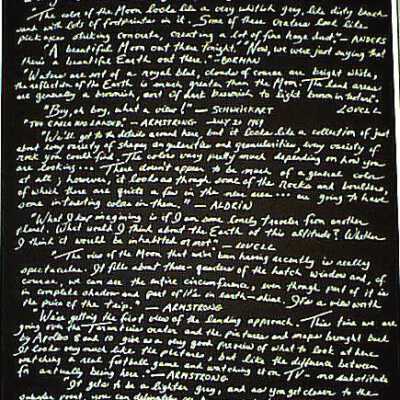 "The color of the Moon looks like a very whitish gray, like dirty beach
sand with lots of footprints in it. Some of these craters look like
pick axes striking concrete, creating a lot of fine haze dust." — ANDERS
"A beautiful Moon out there tonight." "Now, we were just saying that
there's a beautiful Earth out there." — BORMAN
"Waters are sort of a royal blue, clouds of course are bright white,
the reflection off the Earth is much greater than the Moon. The land areas
are generally a brownish, sort of dark brownish to light brown in texture."
LOVELL
"Boy, oh boy, what a view!" — SCHWEICKART
— ARMSTRONG — JULY 20 1969
"We'll get to the details around here, but it looks like a collection of just
about every variety of shapes, angularities and granularities, every variety of
rock you could find. The colors vary pretty much depending on how you
are looking... There doesn't appear to be much of a general color
at all; however, it looks as though some of the rocks and boulders,
of which there are quite a few in the near area... are going to have
some interesting colors to them." — ALDRIN
"What I keep imagining is if I am some lonely traveler from another
planet. What would I think about the Earth at this altitude? Whether
I think it would be inhabited or not." — LOVELL
"The view of the Moon that we've been having recently is really
spectacular. It fills about three-quarters of the hatch window and, of
course, we can see the entire circumference, even though part of it is
in complete shadow and part of it's in earth-shine. It's a view worth
the price of the trip." — ARMSTRONG
"We're getting the first view of the landing approach. This time we are
going over the Taruntius crater and the pictures and maps brought back
by Apollo 8 and 10 give us a very good preview of what to look at here.
It looks very much like the pictures, but like the difference between
watching a real football game and watching it on TV — no substitute
for actually being here." — ARMSTRONG
"It gets to be a lighter gray, and as you get closer to the
subsolar point, you can definitely